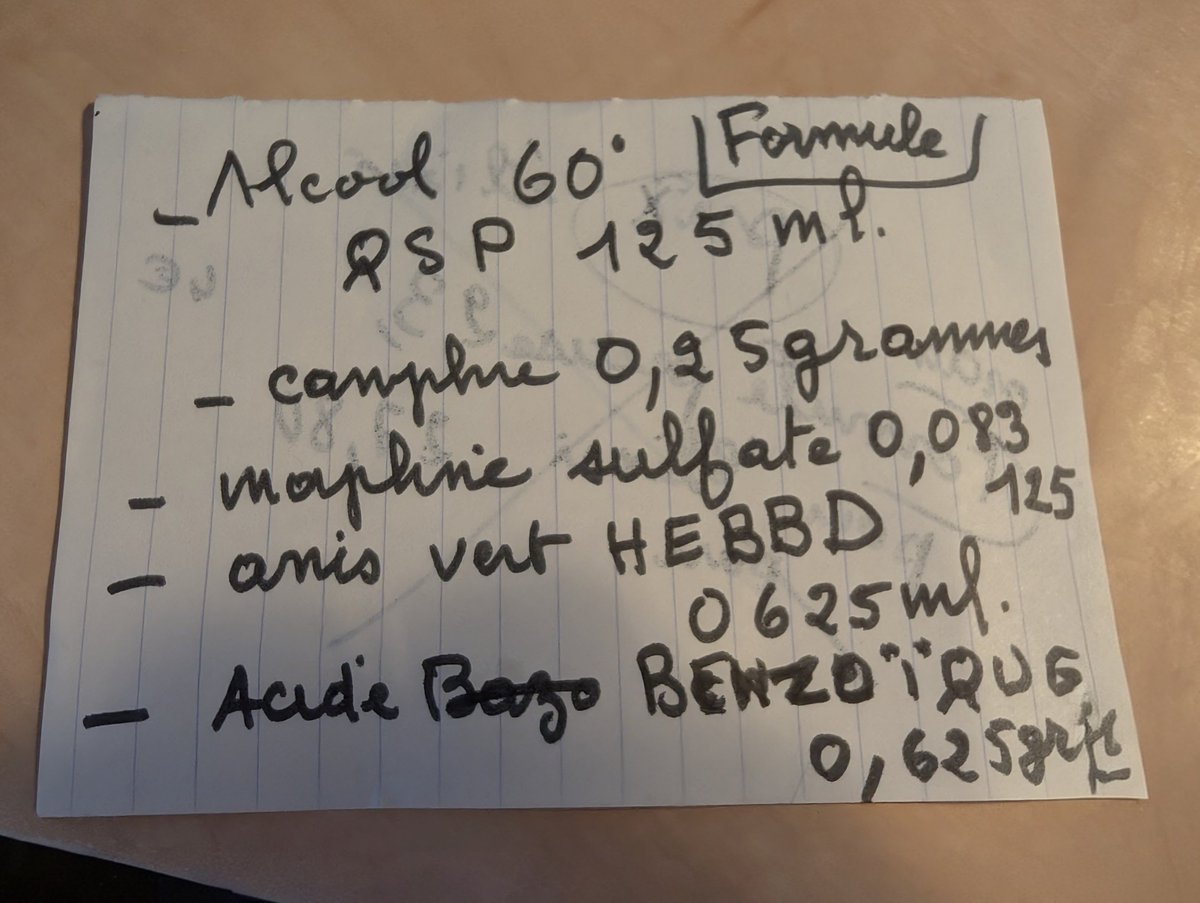 Formule
- Alcool 60°
QSP 125 ml.
- camphre 0,25 grammes
- morphine sulfate 0,083
125
- anis vert HEBBD
0 625 ml.
- Acide BENZOÏQUE
0,625 gr